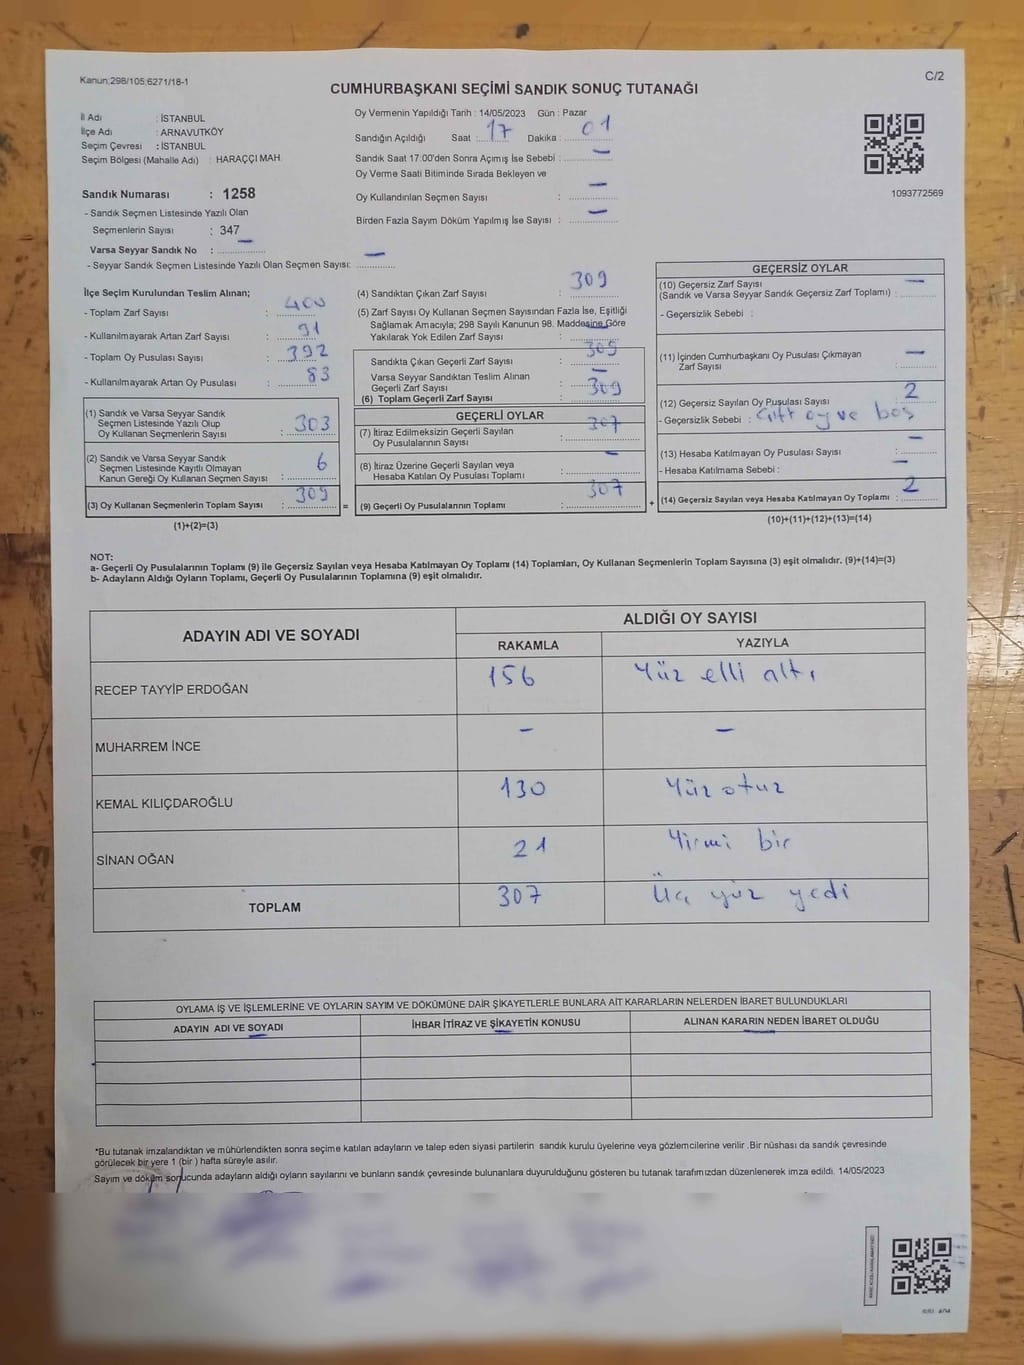 Kanun:298/105;6271/18-1
C/2
CUMHURBAŞKANI SEÇİMİ SANDIK SONUÇ TUTANAĞI
İl Adı : İSTANBUL
İlçe Adı : ARNAVUTKÖY
Seçim Çevresi : İSTANBUL
Seçim Bölgesi (Mahalle Adı) : HARAÇÇI MAH.
Sandık Numarası : 1258
- Sandık Seçmen Listesinde Yazılı Olan
Seçmenlerin Sayısı : 347
Varsa Seyyar Sandık No : —
- Seyyar Sandık Seçmen Listesinde Yazılı Olan Seçmen Sayısı: —
Oy Vermenin Yapıldığı Tarih : 14/05/2023 Gün : Pazar
Sandığın Açıldığı Saat : 17 Dakika : 01
Sandık Saat 17:00'den Sonra Açımış İse Sebebi : —
Oy Verme Saati Bitiminde Sırada Bekleyen ve
Oy Kullandırılan Seçmen Sayısı : —
Birden Fazla Sayım Döküm Yapılmış İse Sayısı : —
1093772569
İlçe Seçim Kurulundan Teslim Alınan;
- Toplam Zarf Sayısı : 400
- Kullanılmayarak Artan Zarf Sayısı : 91
- Toplam Oy Pusulası Sayısı : 392
- Kullanılmayarak Artan Oy Pusulası : 83
(1) Sandık ve Varsa Seyyar Sandık
Seçmen Listesinde Yazılı Olup
Oy Kullanan Seçmenlerin Sayısı : 303
(2) Sandık ve Varsa Seyyar Sandık
Seçmen Listesinde Kayıtlı Olmayan
Kanun Gereği Oy Kullanan Seçmen Sayısı : 6
(3) Oy Kullanan Seçmenlerin Toplam Sayısı : 309
(1)+(2)=(3)
(4) Sandıktan Çıkan Zarf Sayısı : 309
(5) Zarf Sayısı Oy Kullanan Seçmen Sayısından Fazla İse, Eşitliği
Sağlamak Amacıyla; 298 Sayılı Kanunun 98. Maddesine Göre
Yakılarak Yok Edilen Zarf Sayısı : —
Sandıkta Çıkan Geçerli Zarf Sayısı : 309
Varsa Seyyar Sandıktan Teslim Alınan
Geçerli Zarf Sayısı : —
(6) Toplam Geçerli Zarf Sayısı : 309
GEÇERLİ OYLAR
(7) İtiraz Edilmeksizin Geçerli Sayılan
Oy Pusulalarının Sayısı : 307
(8) İtiraz Üzerine Geçerli Sayılan veya
Hesaba Katılan Oy Pusulası Toplamı : —
= (9) Geçerli Oy Pusulalarının Toplamı : 307 +
GEÇERSİZ OYLAR
(10) Geçersiz Zarf Sayısı
(Sandık ve Varsa Seyyar Sandık Geçersiz Zarf Toplamı) : —
- Geçersizlik Sebebi :
(11) İçinden Cumhurbaşkanı Oy Pusulası Çıkmayan
Zarf Sayısı : —
(12) Geçersiz Sayılan Oy Pusulası Sayısı : 2
- Geçersizlik Sebebi : Çift oy ve boş
(13) Hesaba Katılmayan Oy Pusulası Sayısı : —
- Hesaba Katılmama Sebebi : —
(14) Geçersiz Sayılan veya Hesaba Katılmayan Oy Toplamı : 2
(10)+(11)+(12)+(13)=(14)
NOT:
a- Geçerli Oy Pusulalarının Toplamı (9) ile Geçersiz Sayılan veya Hesaba Katılmayan Oy Toplamı (14) Toplamları, Oy Kullanan Seçmenlerin Toplam Sayısına (3) eşit olmalıdır. (9)+(14)=(3)
b- Adayların Aldığı Oyların Toplamı, Geçerli Oy Pusulalarının Toplamına (9) eşit olmalıdır.
ADAYIN ADI VE SOYADI ALDIĞI OY SAYISI
RAKAMLA YAZIYLA
RECEP TAYYİP ERDOĞAN 156 Yüz elli altı
MUHARREM İNCE — —
KEMAL KILIÇDAROĞLU 130 Yüz otuz
SİNAN OĞAN 21 Yirmi bir
TOPLAM 307 Üç yüz yedi
OYLAMA İŞ VE İŞLEMLERİNE VE OYLARIN SAYIM VE DÖKÜMÜNE DAİR ŞİKAYETLERLE BUNLARA AİT KARARLARIN NELERDEN İBARET BULUNDUKLARI
ADAYIN ADI VE SOYADI İHBAR İTİRAZ VE ŞİKAYETİN KONUSU ALINAN KARARIN NEDEN İBARET OLDUĞU
*Bu tutanak imzalandıktan ve mühürlendikten sonra seçime katılan adayların ve talep eden siyasi partilerin sandık kurulu üyelerine veya gözlemcilerine verilir .Bir nüshası da sandık çevresinde
görülecek bir yere 1 (bir ) hafta süreyle asılır.
Sayım ve döküm sonucunda adayların aldığı oyların sayılarını ve bunların sandık çevresinde bulunanlara duyurulduğunu gösteren bu tutanak tarafımızdan düzenlenerek imza edildi. 14/05/2023